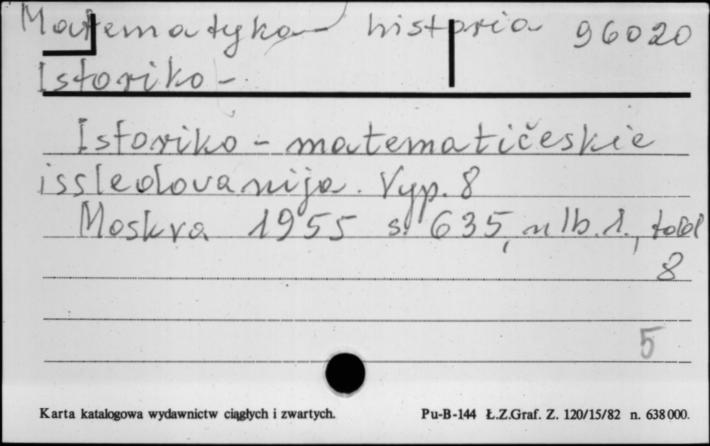 Matematyka - historia 96020
Istoriko -
Istoriko - matematičeskie
issledovanija. Vyp. 8
Moskva 1955 s. 635, nlb. 1., tabl
8
5
Karta katalogowa wydawnictw ciągłych i zwartych. Pu-B-144 Ł.Z.Graf. Z. 120/15/82 n. 638000.